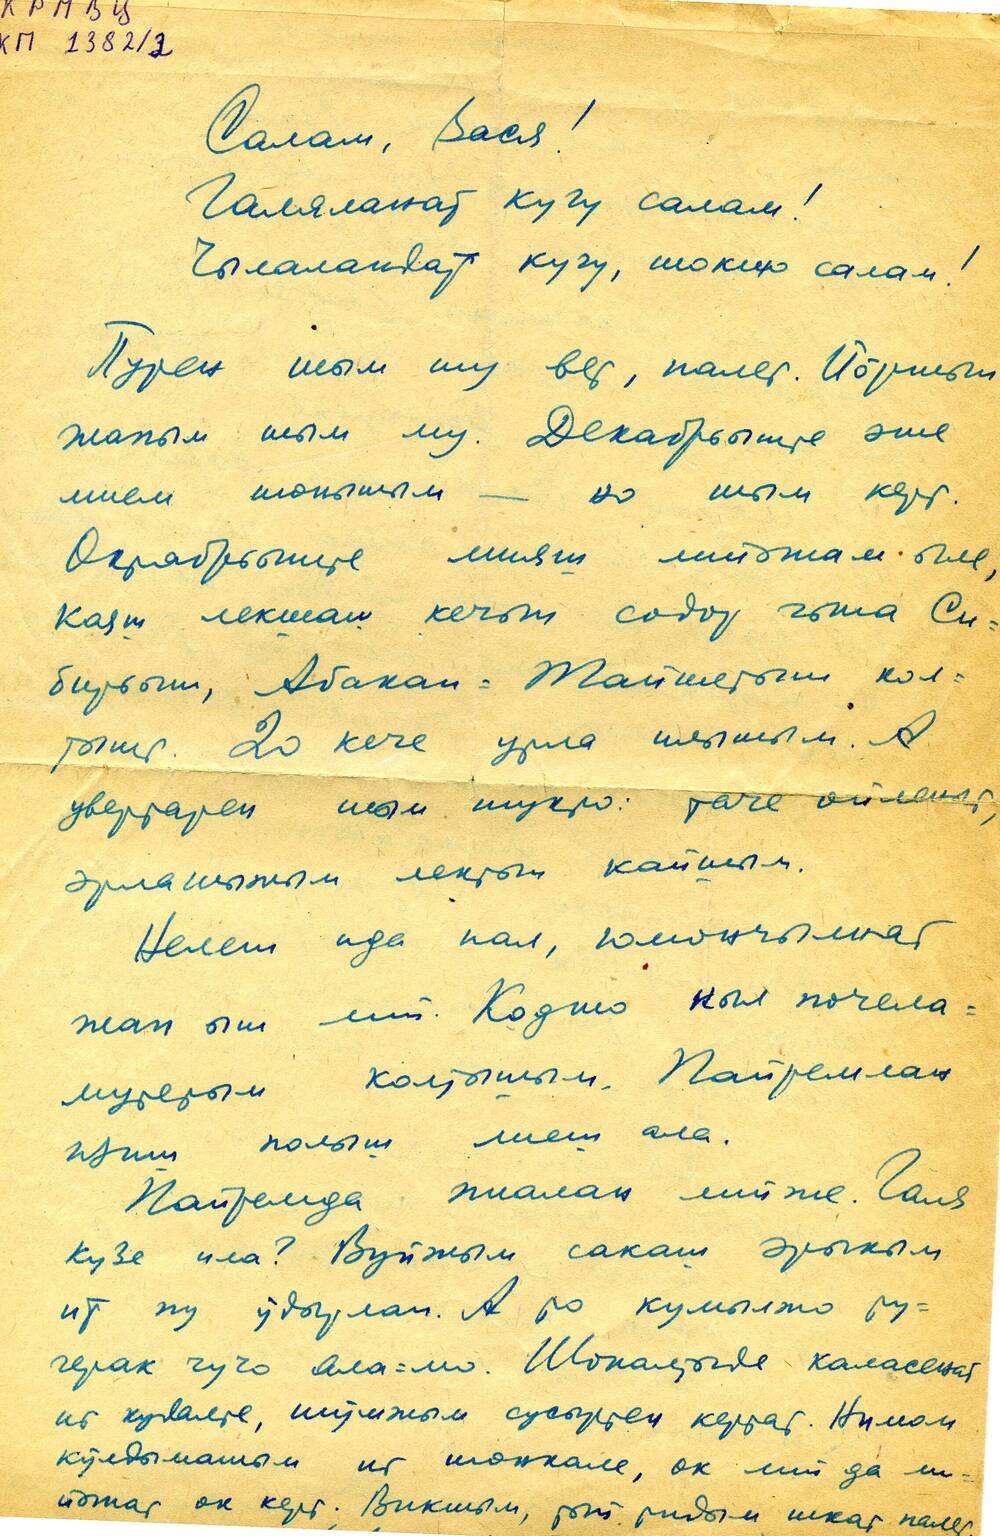 КРМВЦ
КП 1382/2
Салам, Вася!
Галяланат кугу салам!
Чылаландат кугу, шокшо салам!
Пурен шым шу вет, палет. Йӧршын
жапым шым му. Декабрьыште эше
мием шонышым — но шым керт.
Октябрьыште мияш лийэшам ыле,
каяш лекшаш кечын содор гына Си=
бирьыш, Абакан=Тайшетыш кол=
тышт. 20 кече утла шӱшым. А
увертарен шым шукто: таче ойленыт,
эрлашыжым лектын кайышым.
Нелеш ида нал, юмончылнат
жап ыш лий. Кодшо кыл почела=
мутетым колтышым. Пайремлан
полыш лиеш ала.
Пайремда жапан лийже. Галя
кузе ила? Вуйжым сакаш эрыкым
ит пу ӱдырлан. А то кумылжо ту=
герак чучо ала=мо. Шоналтыде каласенат
ит кудалте, шӱмжым сусыртен кертат. Нимом
кӱлдымашым ит шонкале, ок лий да ли=
йынат ок керт. Викшым, тый тидым шкат палет.